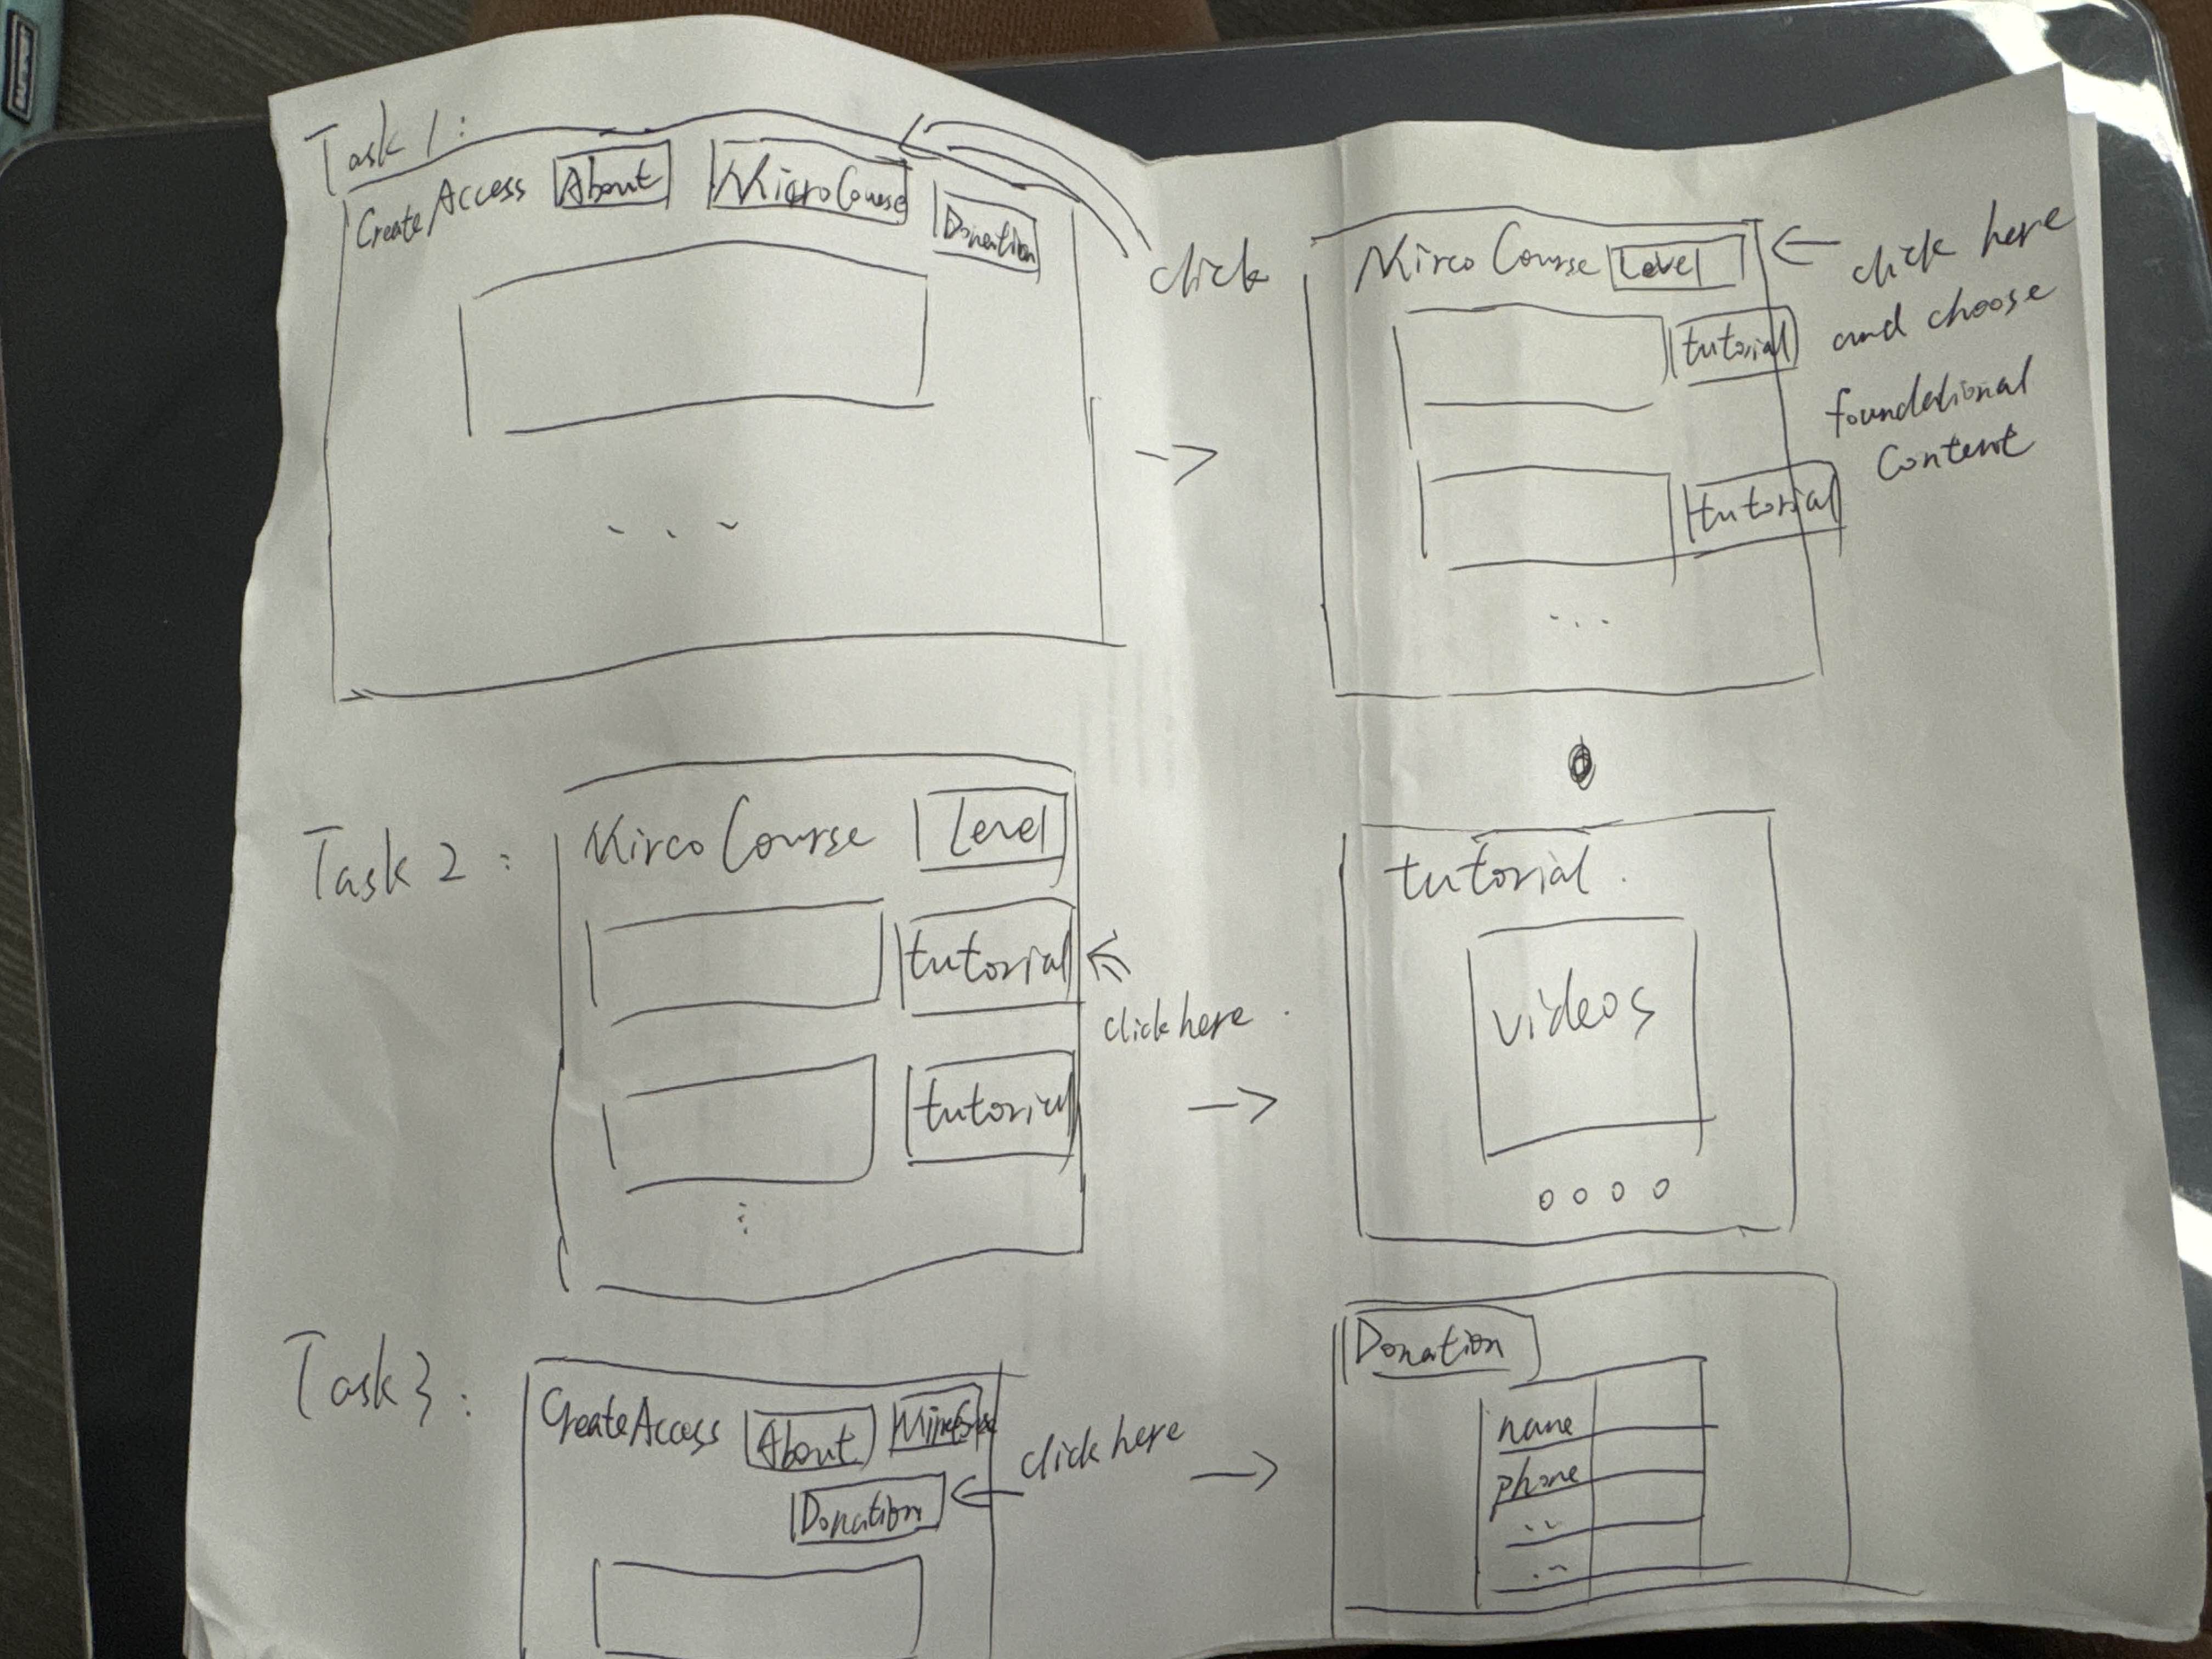 Task 1:
CreateAccess About MicroCourse Donation
click
Mirco Course Level
click here
and choose
foundational
Content
tutorial
tutorial
...
...
Task 2:
Mirco Course Level
tutorial
click here.
tutorial
tutorial.
videos
Task 3:
CreateAccess About
Donation
click here
Donation
name
phone